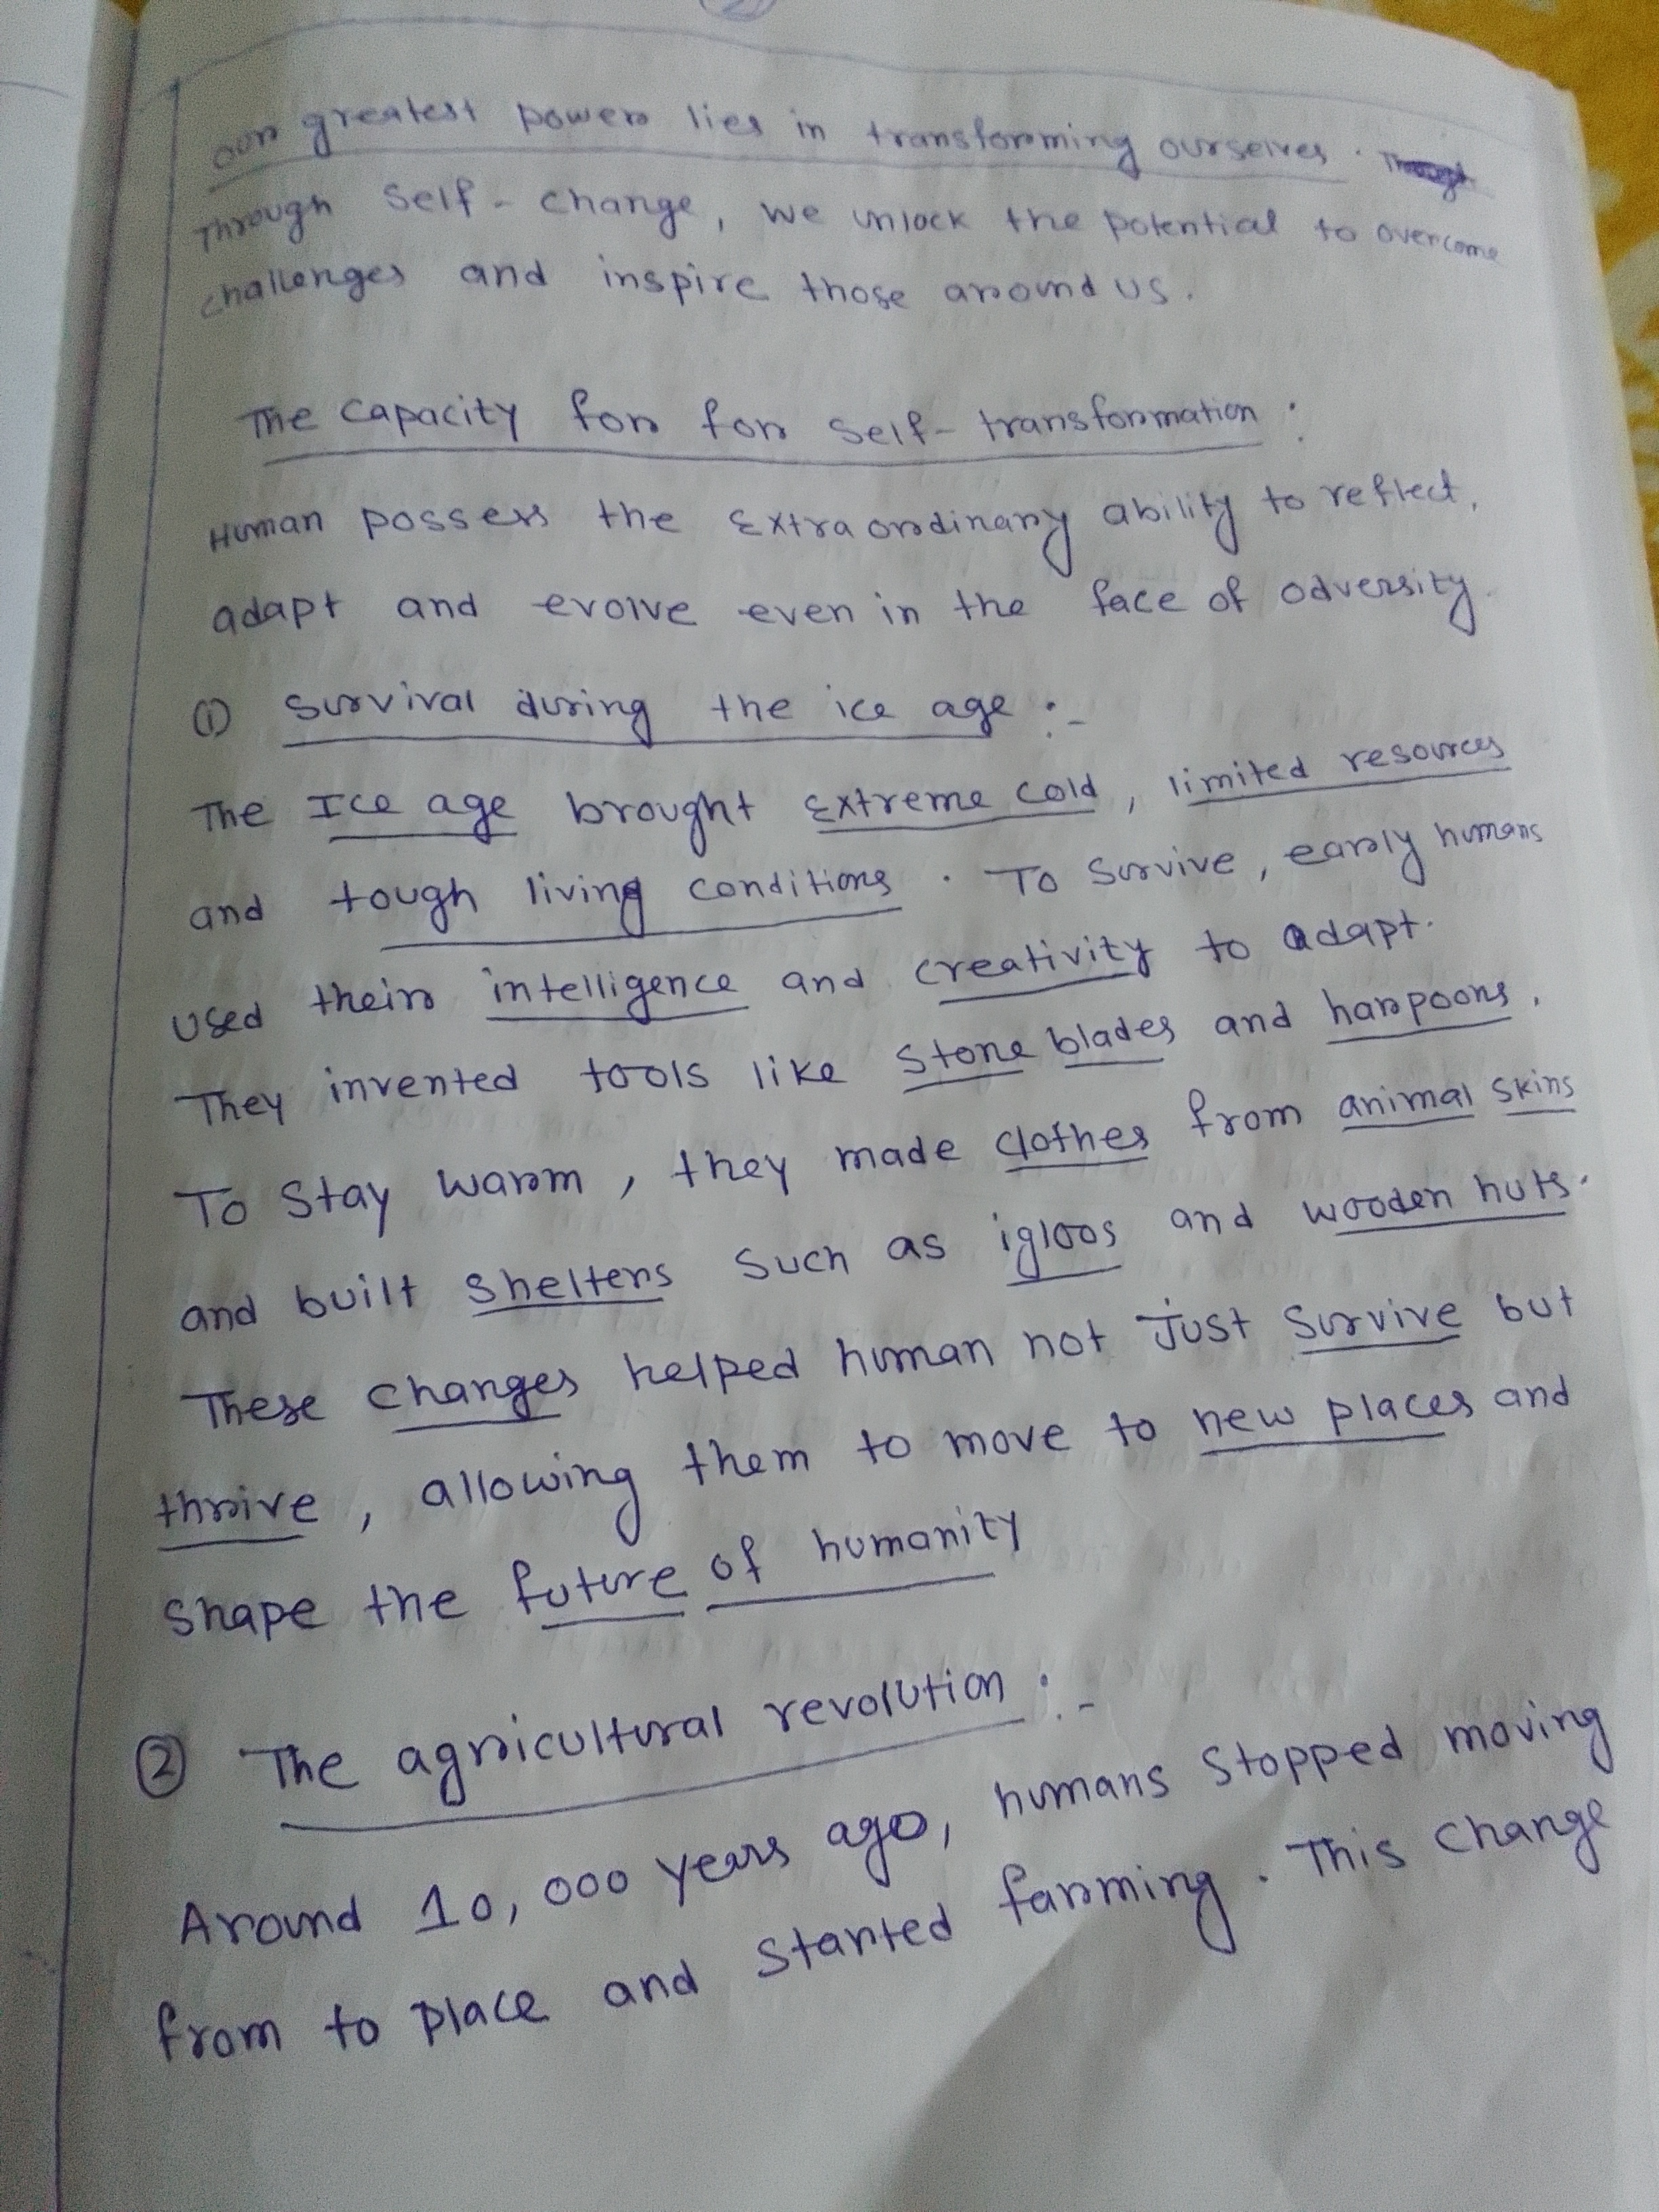 our greatest power lies in transforming ourselves.
Through self-change, we unlock the potential to overcome
challenges and inspire those around us.
The capacity for for self-transformation :
Human possess the Extraordinary ability to reflect,
adapt and evolve even in the face of adversity.
① Survival during the ice age :-
The Ice age brought Extreme cold, limited resources
and tough living conditions. To survive, early humans
used their intelligence and creativity to adapt.
They invented tools like stone blades and harpoons.
To stay warm, they made clothes from animal skins
and built shelters such as igloos and wooden huts.
These changes helped human not just survive but
thrive, allowing them to move to new places and
shape the future of humanity
② The agricultural revolution :-
Around 10,000 years ago, humans stopped moving
from to place and started farming. This change